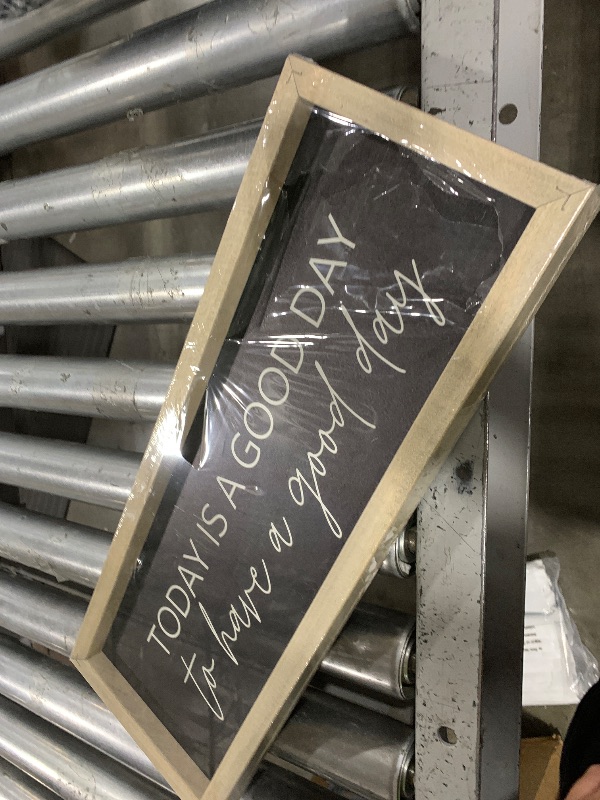 TODAY IS A GOOD DAY
to have a good day